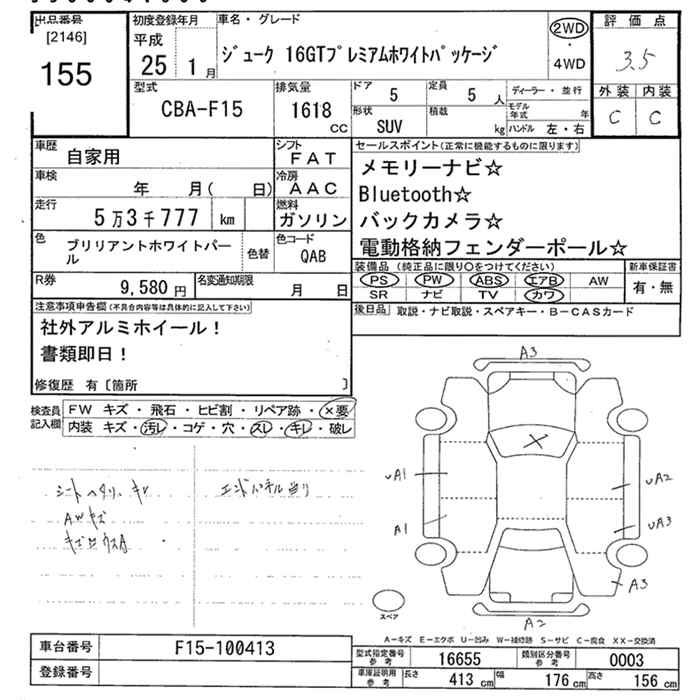 出品番号
[2146]
155
初度登録年月
平成
25 1 月
車名・グレード
ジューク 16GTプレミアムホワイトパッケージ
2WD
・
4WD
評価点
3.5
外装 内装
C C
型式
CBA-F15
排気量
1618
CC
ドア
5
定員
5 人
形状
SUV
積載
kg
ディーラー・並行
モデル年式 年
ハンドル 左・右
車歴
自家用
シフト
FAT
車検
年 月( 日)
冷房
AAC
走行
5万3千777 km
燃料
ガソリン
色
ブリリアントホワイトパール
色替
色コード
QAB
R券
9,580 円
名変通知期限
月 日
セールスポイント(正常に機能するものに限ります)
メモリーナビ☆
Bluetooth☆
バックカメラ☆
電動格納フェンダーポール☆
装備品 (純正品に限り○をつけてください)
PS PW ABS エアB AW
SR ナビ TV カワ
新車保証書
有・無
後日品 取説・ナビ取説・スペアキー・B-CASカード
注意事項申告欄(不具合内容等は具体的に記入して下さい)
社外アルミホイール!
書類即日!
修復歴 有〔箇所 〕
検査員記入欄
FW キズ・飛石・ヒビ割・リペア跡・×要
内装 キズ・汚レ・コゲ・穴・スレ・キレ・破レ
シートヘタリ、キレ
AWキズ
エンドパネル当り
A3
UA1
A1
UA2
UA3
A3
A2
スペア
A-キズ E-エクボ U-凹み W-補修跡 S-サビ C-腐食 XX-交換済
車台番号
F15-100413
登録番号
型式指定番号 参考
16655
類別区分番号 参考
0003
車庫証明用 参考
長さ 413 cm
幅 176 cm
高さ 156 cm